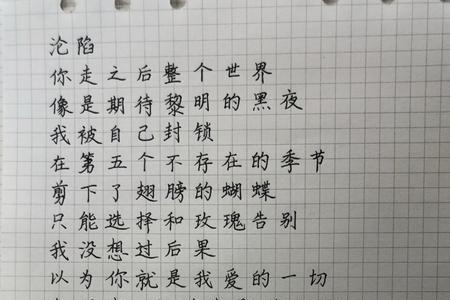 沦陷
你走之后整个世界
像是期待黎明的黑夜
我被自己封锁
在第五个不存在的季节
剪下了翅膀的蝴蝶
只能选择和玫瑰告别
我没想过后果
以为你就是我爱的一切